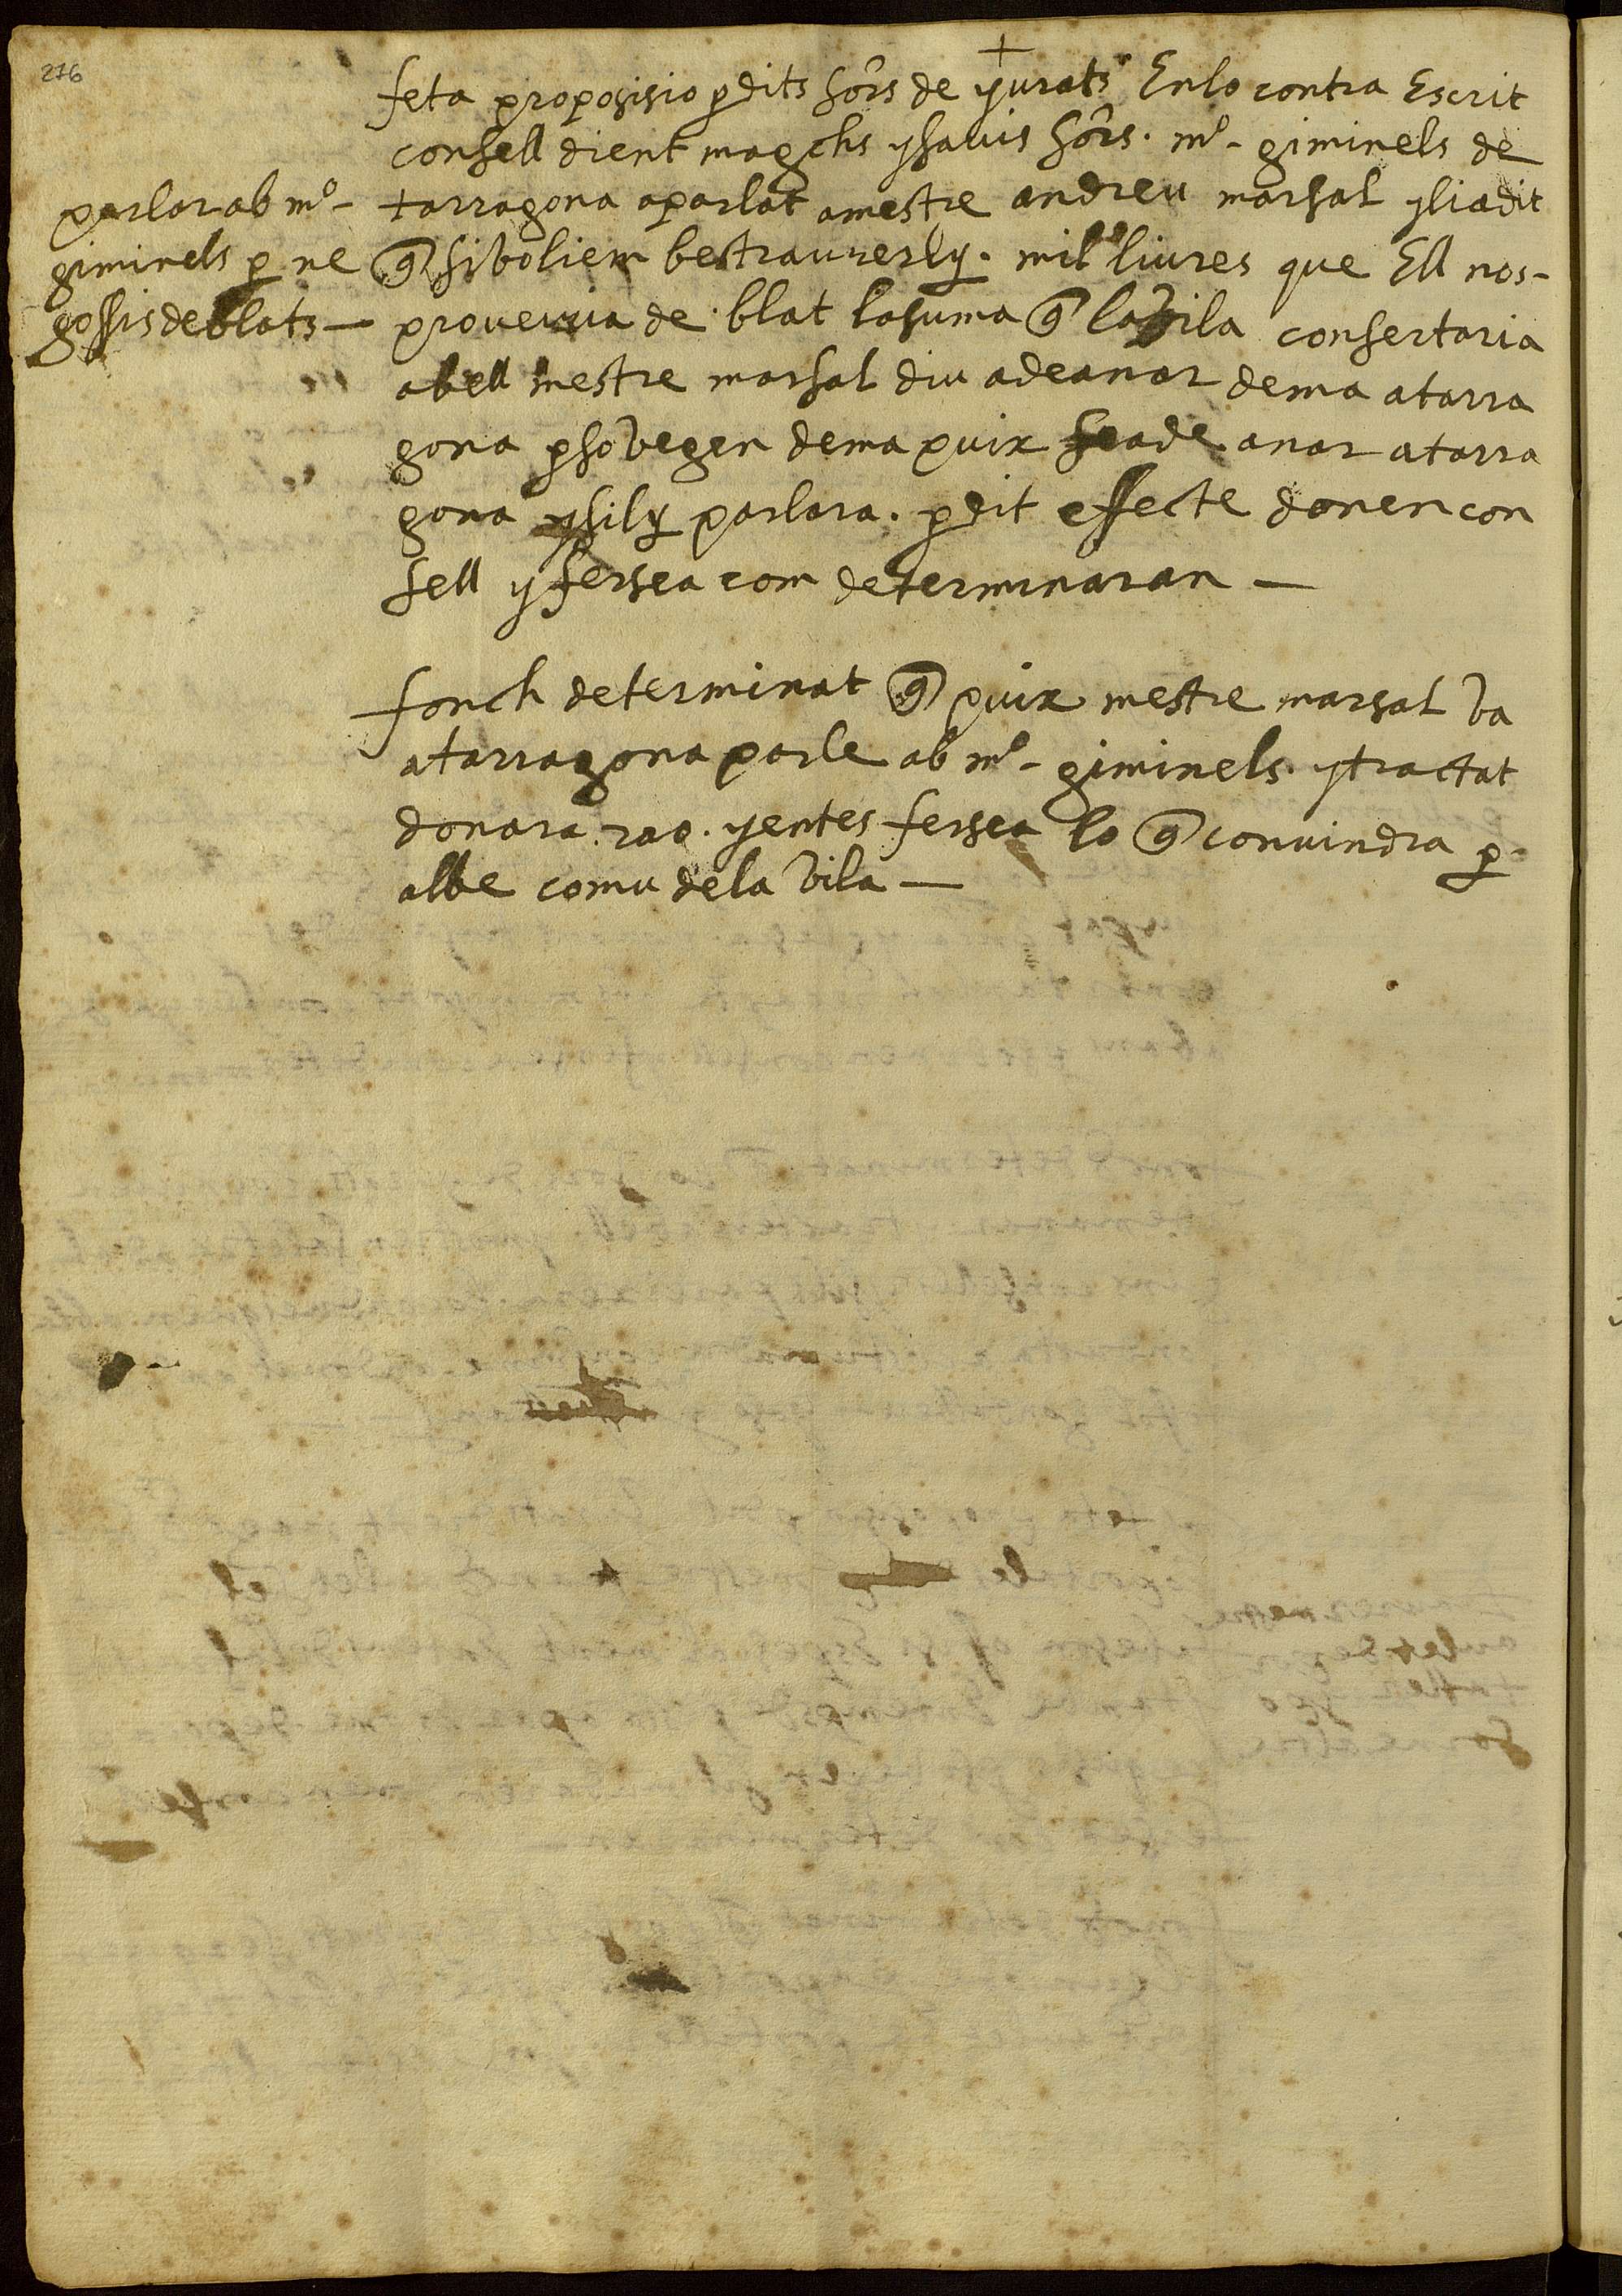 276
+
feta proposisio p dits Sors de yurats En lo contra Escrit
consell dient magchs y savis Sors. mº - giminels de
tarragona a parlat a mestre andreu marsal y li a dit
q si voliem bestraurerly. mil liures que Ell nos-
proveuria de blat la suma q la vila consertaria
ab ell mestre marsal diu a de anar dema a tarra
gona p so vegen dema puix se a de anar a tarra
gona y si ly parlara. p dit effecte donen con
sell y fersea com determinaran —
parlar ab mº -
giminels p ne
gossis de blats —
fonch determinat q puix mestre marsal va
a tarragona parle ab mº - giminels. y tractat
donara rao. y entes fersea lo q convindra p
al be comu de la vila —